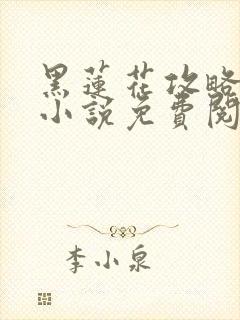 黑蓮花攻略
小說免費閱
李小泉